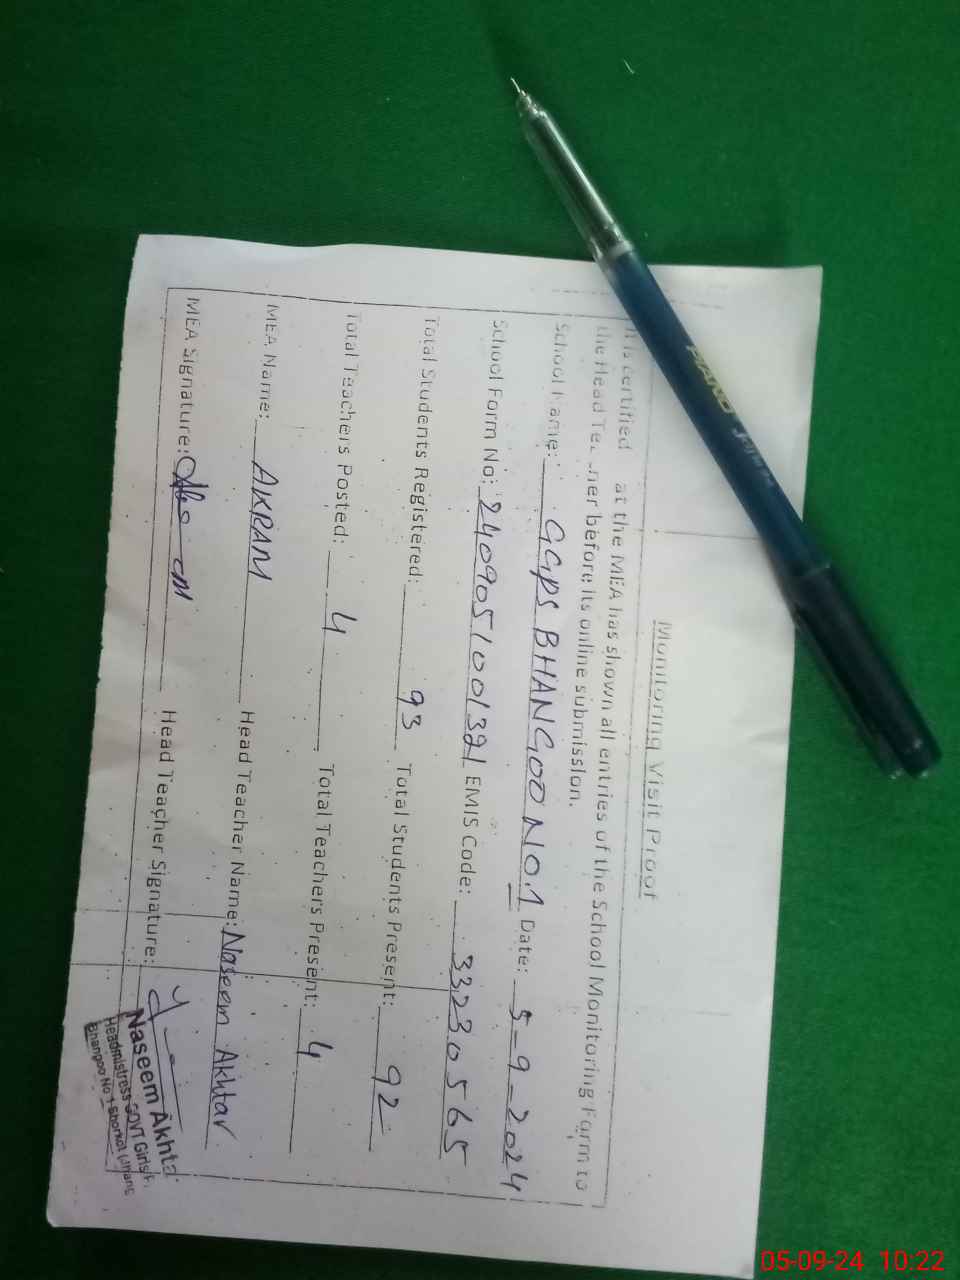 Monitoring Visit Proof
It is certified at the MEA has shown all entries of the School Monitoring Form to
the Head Teacher before its online submission.
School Name: GGPS BHANGOO NO.1 Date: 5-9-2024
School Form No: 2409051001321 EMIS Code: 33230565
Total Students Registered: 93 Total Students Present: 92
Total Teachers Posted: 4 Total Teachers Present: 4
MEA Name: AKRAM Head Teacher Name: Naseem Akhtar
MEA Signature: Head Teacher Signature:
Naseem Akhta
Headmistress GOVT Girls
Bhangoo No 1 Shorkot (Jhang
PIANO
05-09-24 10:22